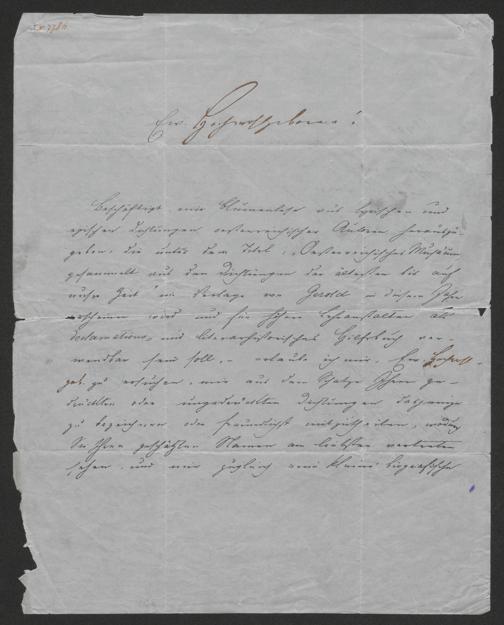 Ew. Hochwohlgeboren!
Beschäftigt, eine Blumenlese aus lyrischen und
epischen Dichtungen oesterreichischer Autoren herauszu-
geben, die unter dem Titel: „Oesterreichisches Museum
gesammelt aus den Dichtungen der ältesten bis auf
unsre Zeit" im Verlage von Gerold in diesem Jahre
erscheinen wird und für höhere Lehranstalten als
Declamations- und literarhistorisches Hilfsbuch ver-
wendbar sein soll, – erlaube ich mir, Ew. Hochwohl-
geb. zu ersuchen, mir aus dem Schatze Ihrer ge-
druckten oder ungedruckten Dichtungen dasjenige
zu bezeichnen oder freundlichst mitzutheilen, wodurch
Sie Ihren geschätzten Namen am liebsten vertreten
sehen, und mir zugleich eine kleine biographische